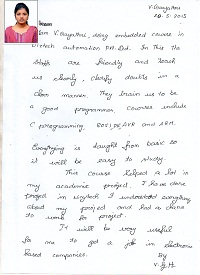 V. Gayathri
28-5-2013
I am V. Gayathri, doing embedded course in
Unitech automation Pvt. Ltd. In this the
staffs are friendly and teach
us clearly, clarify doubts in a
clear manner. They train us to be
a good programmer. Courses include
C programming, 8051, PIC, AVR and ARM.
Everything is taught from basic so
it will be easy to study.
This course helped a lot in
my academic project. I have done
project in Unitech I understood everything
about my project and had no
to work for project.
It will be very useful
for me to get a job in electronic
based companies.
By
V. G.